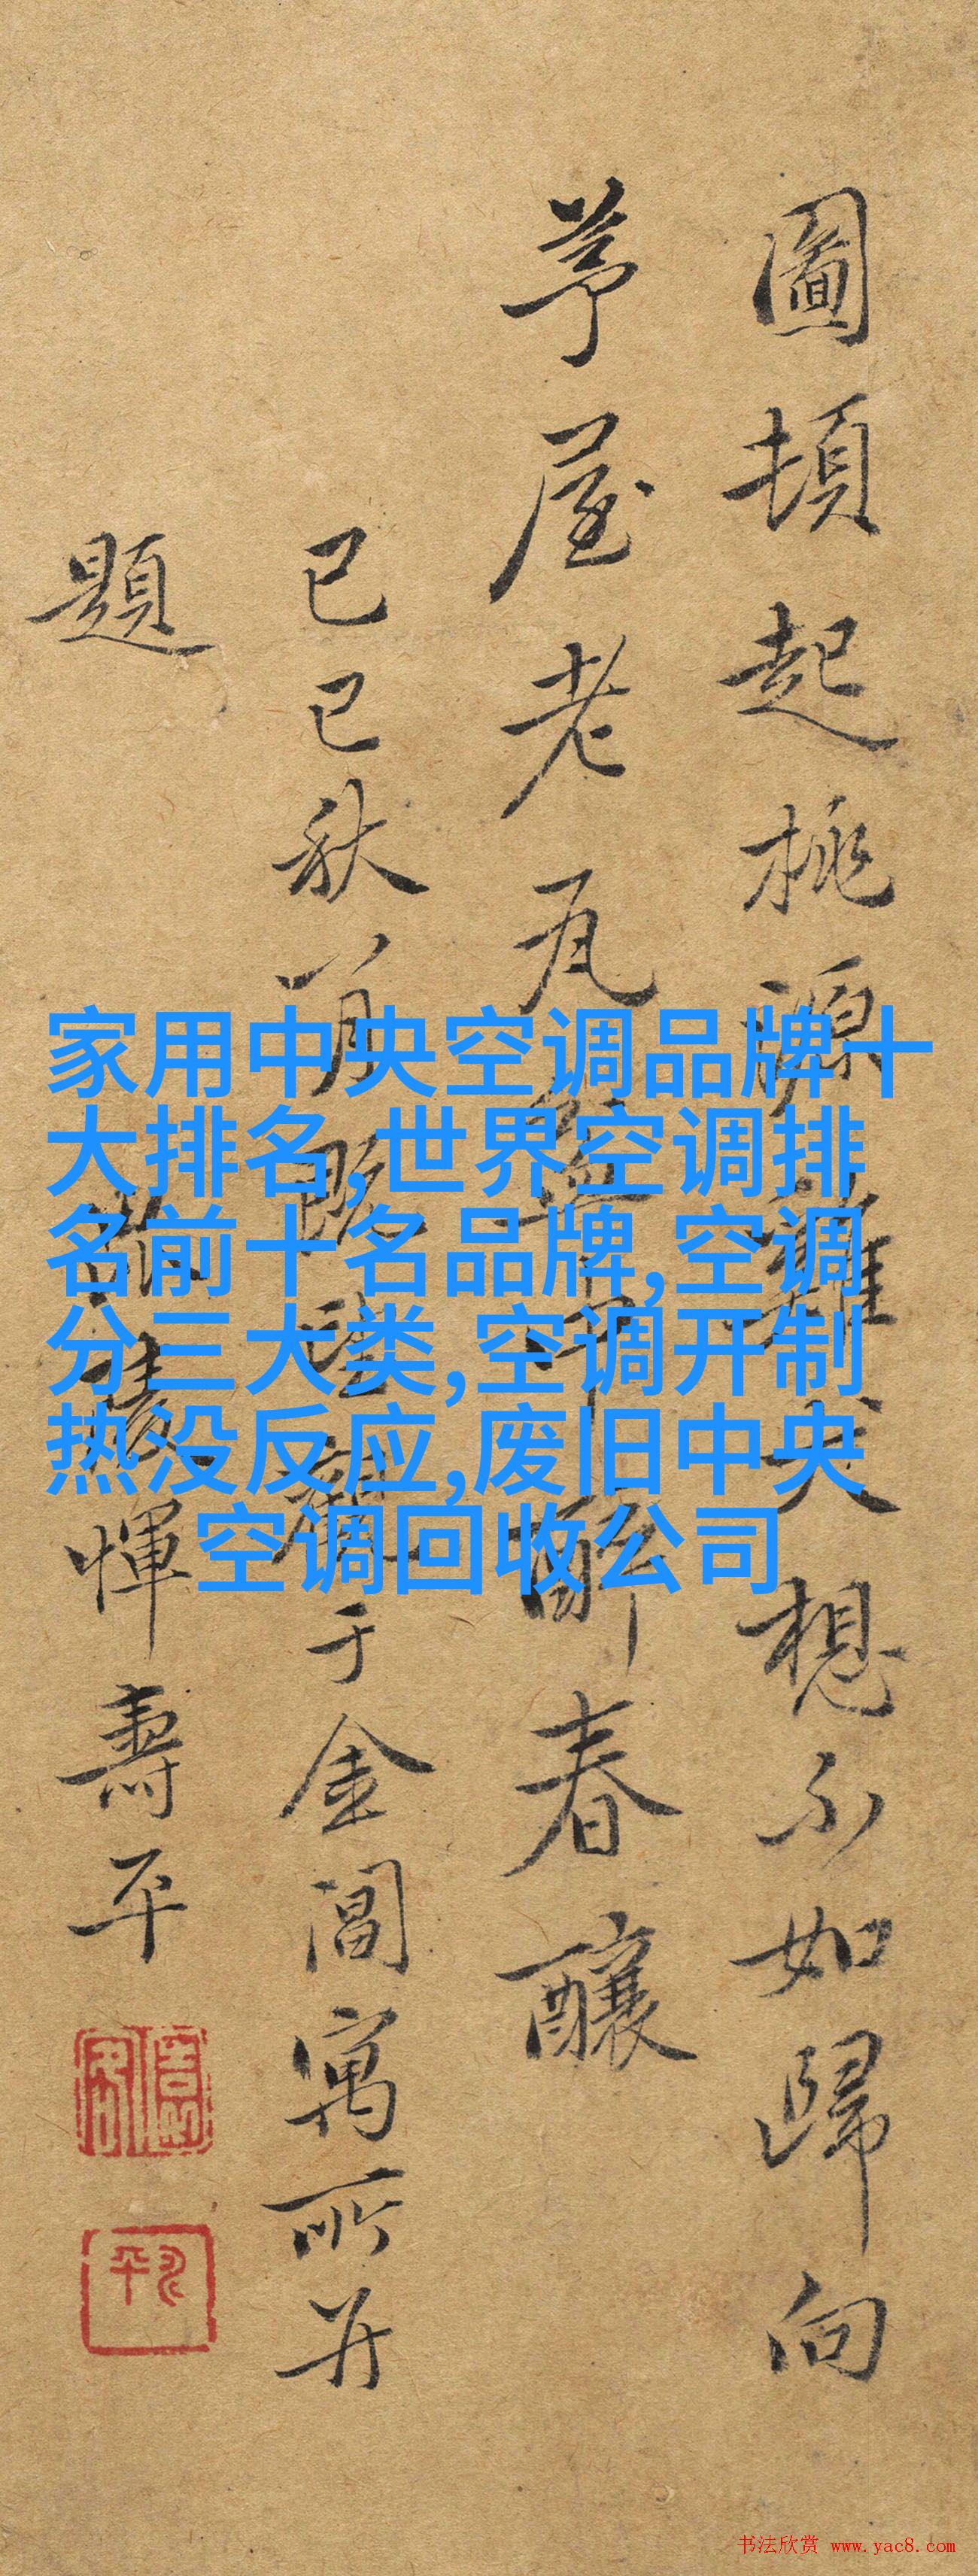 圖頓起桃源雞犬想不如歸向
茅屋老瓦盆中醉春釀
己巳秋八月既望觀于金閶寓所并
題
陵惲壽平
家用中央空调品牌十
大排名,世界空调排
名前十名品牌,空调
分三大类,空调开制
热没反应,废旧中央
空调回收公司
书法欣赏 www.yac8.com